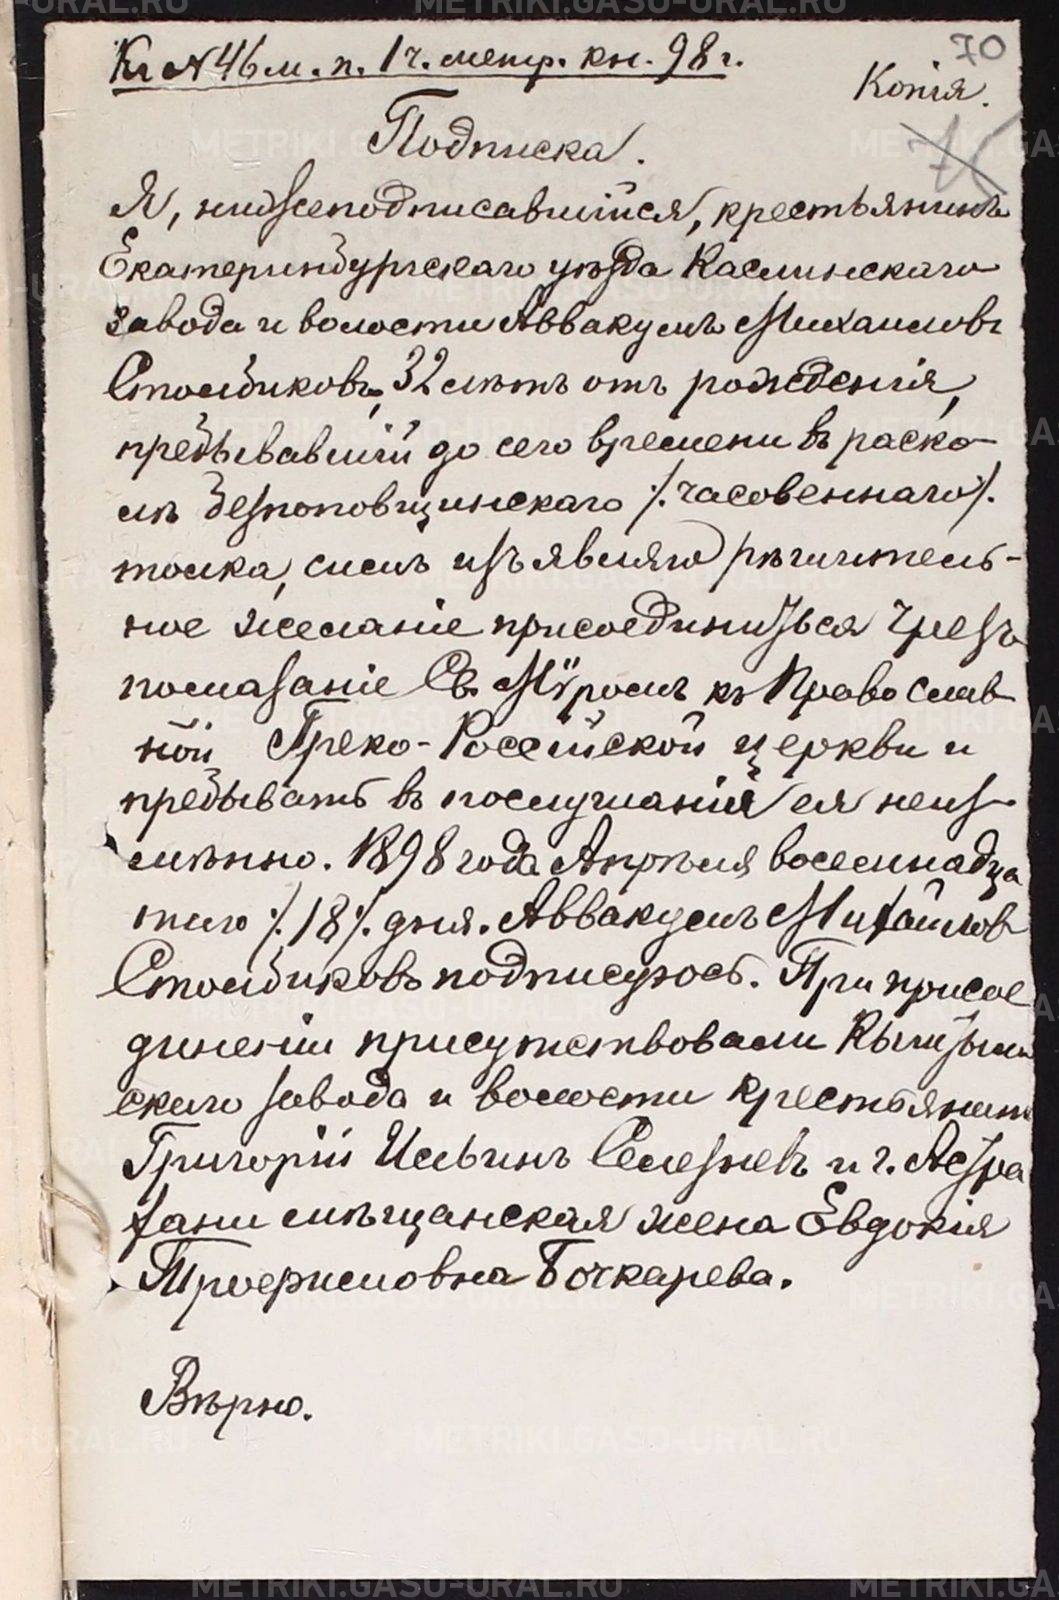 70
Къ №46 м. п. 1 ч. метр. кн. 98 г.
Копія.
Подписка.
Я, нижеподписавшійся, крестьянинъ
Екатеринбургскаго уѣзда Каслинскаго
завода и волости Аввакумъ Михаиловъ
Столбиковъ, 32 лѣтъ отъ рожденія,
пребывавшій до сего времени въ раско-
лѣ безпоповщинскаго /. часовеннаго /.
толка, симъ изъявляю рѣшитель-
ное желаніе присоединиться чрезъ
помазаніе Св. Мѵромъ къ Православ
ной Греко-Россійской церкви и
пребывать въ послушаніи ея неиз-
мѣнно. 1898 года Апрѣля восемнадца
таго /. 18 /. дня. Аввакумъ Михайлов
Столбиковъ подписуюсь. При присое
диненіи присутствовали Кыштым
скаго завода и волости крестьянин
Григорій Ильинъ Селезневъ и г. Астра
хани мѣщанская жена Евдокія
Трофимовна Бочкарева.
Вѣрно.
METRIKI.GASO-URAL.RU